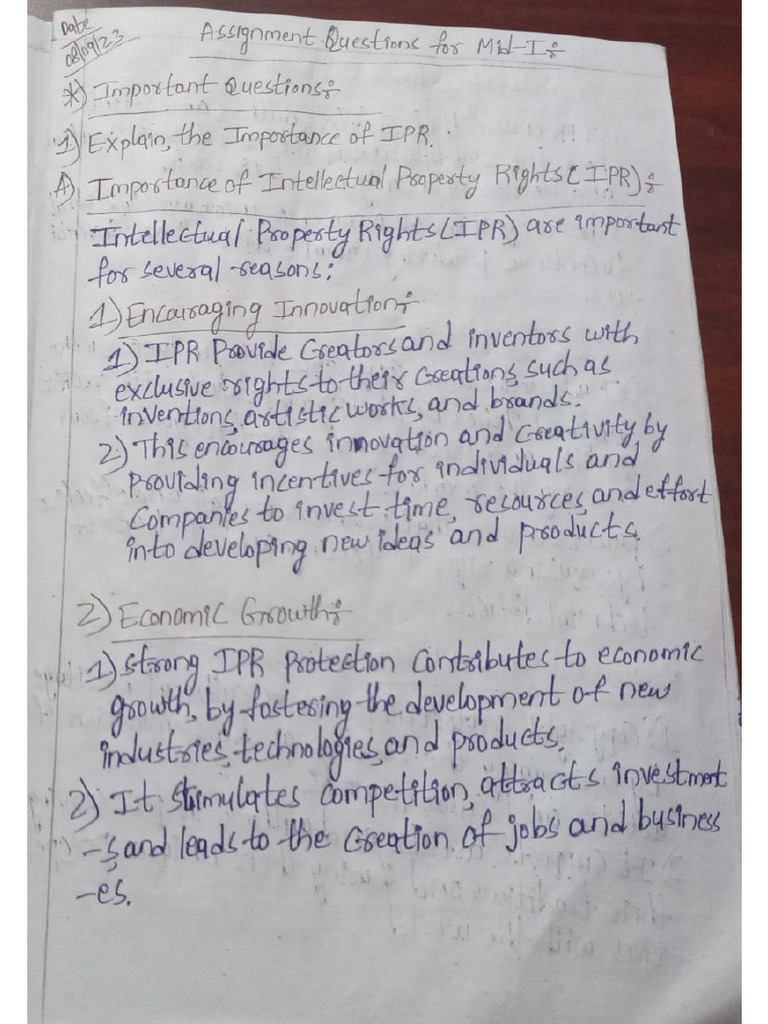 Date
08/09/23
Assignment Questions for Mid-I:-
*) Important Questions:-
1) Explain, the Importance of IPR.
A) Importance of Intellectual Property Rights (IPR):-
Intellectual Property Rights (IPR) are important
for several reasons:
1) Encouraging Innovation:-
1) IPR Provide Creators and inventors with
exclusive rights to their creations, such as
inventions, artistic works, and brands.
2) This encourages innovation and creativity by
Providing incentives for individuals and
Companies to invest time, resources, and effort
into developing new ideas and products.
2) Economic Growth:-
1) Strong IPR Protection contributes to economic
growth, by fostering the development of new
industries, technologies, and products.
2) It stimulates competition, attracts investment
-s, and leads to the creation of jobs and business
-es.